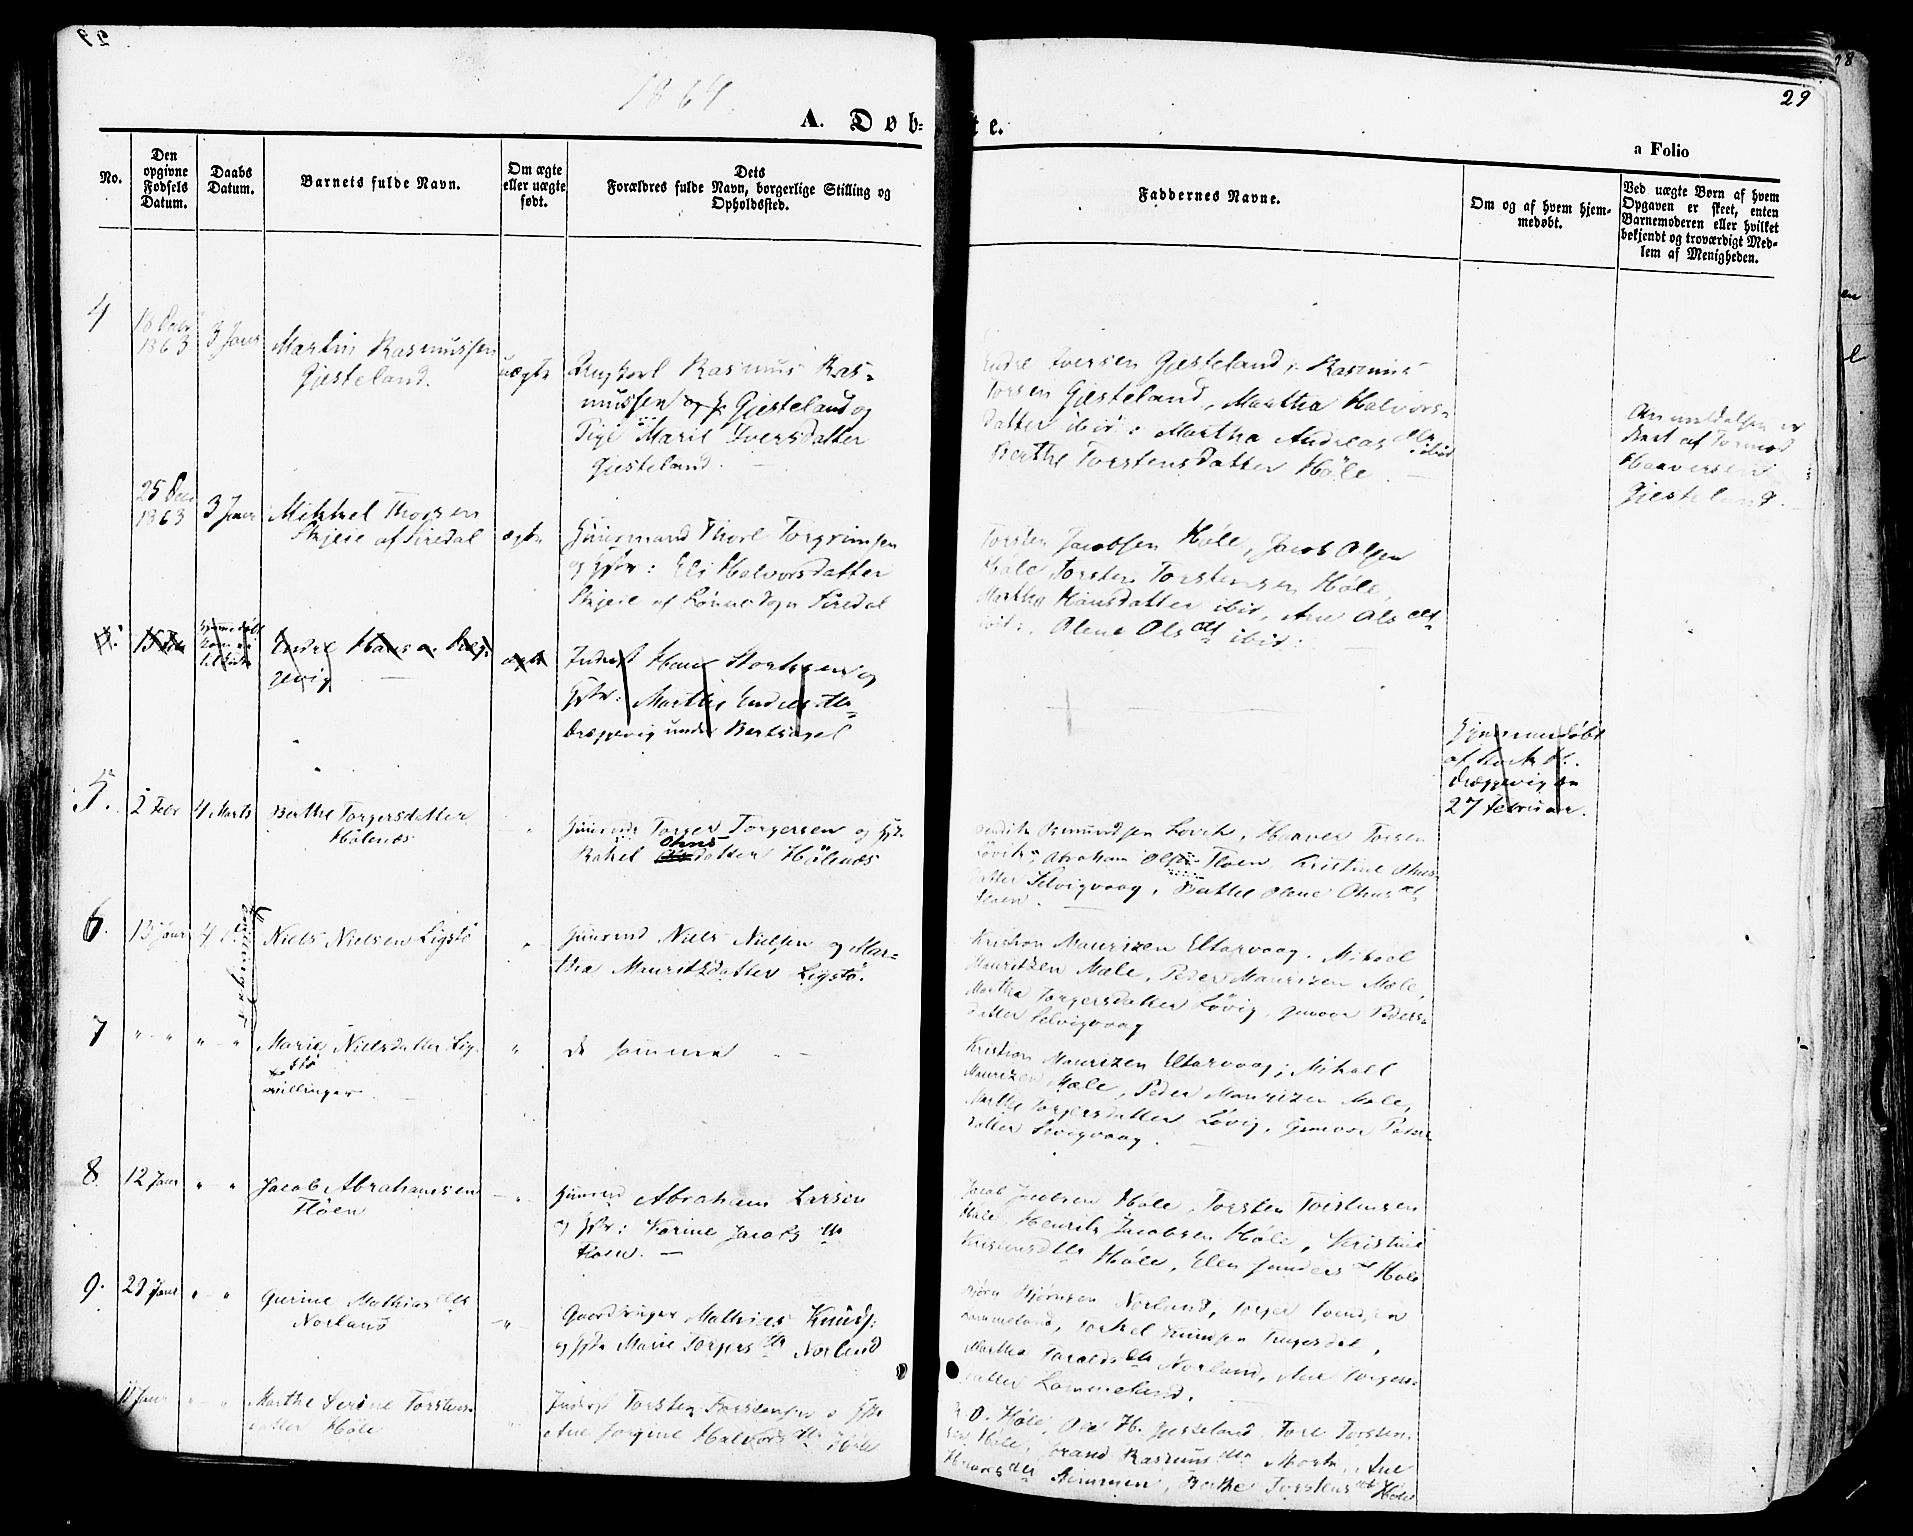 29
1864.
A. Døb-
te.
29
a Folio
No.
Den
opgivne
Fødsels
Datum.
Daabs
Datum.
Barnets fulde Navn.
Om ægte
eller uægte
født.
Dets
Forældres fulde Navn, borgerlige Stilling og
Opholdssted.
Faddernes Navne.
Om og af hvem hjem-
medøbt.
Ved uægte Børn af hvem
Opgaven er skeet, enten
Barnemoderen eller hvilket
bekjendt og troværdigt Med-
lem af Menigheden.
4
18 Decbr
1863
3 Janr
Martin Rasmussen
Gjesteland.
uægte
Ungkarl Rasmus Ras-
mussen Gjesteland og
Pige Marie Iversdatter
Gjesteland.
Endre Iversen Gjesteland, Rasmus
Torsen Gjesteland, Martha Halvors-
datter ibid: Martha Andreasdtr ibid
Berthe Torstensdatter Høle.
Anmeldelsen er
skeet af Tormod
Haaversen
Gjesteland.
25 Decr
1863
3 Janr
Mikkel Thorsen
Skjeie af Siredal
ægte
Huusmand Thore Torgrimsen
og Hstr: Eli Halvorsdatter
Skjeie af Siredal
Torsten Jacobsen Høle, Jacob Olsen
Høle, Torsten Torstensen Høle,
Martha Hansdatter ibid, Ane Olsdtr
ibid:, Olene Olsdtr ibid:
15 Feb
Endre Hansen Dreg-
gevig
ægte
Inderst Hans Storksen og
Hstr: Marthe Endresdtr
Dreggevig under Bertsagel
Hjemmedøbt
af
Dreggevig den
27 Februar.
5.
2 Febr
4 Marts
Berthe Torgersdatter
Hølenæs
Torger Torgersen og Hstr
Rakel Ohnsdatter Hølenæs
Osmundsen Løvik, Haaver Torsen
Løvik, Abraham Olsen Floen, Kristine Ohns-
datter Selvigvaag, Berthe Olene Ohnsdtr
Floen.
6.
13 Janr
4 do
Niels Nielsen Ligstø
"
Niels Nielsen og Mar-
tha Mauritzdatter Ligstø.
Kristian Maurizen Eltarvaag, Mikael
Mauritzen Mæle, Peder Maurizen Mæle,
Martha Torgersdatter Løvig, Gunvor Peders-
datter Selvigvaag
7
" "
" "
Marie Nielsdatter Lig-
stø
Tvillinger
"
de samme
Kristian Maurizen Eltarvaag; Mikael
Maurizen Mæle, Peder Maurizen Mæle,
Marthe Torgersdatter Løvig, Gunvor Peders-
datter Selvigvaag.
8
12 Janr
" "
Jacob Abrahamsen
Fløen
"
Abraham Larsen
og Hstr: Karine Jacobsdtr
Floen.
Jacob Jacobsen Høle, Torsten Torstensen
Høle, Henrik Jacobsen Høle, Kristine
Kristensdtr Høle, Ellen Høle
9.
29 Janr
" "
Gurine Mathiasdtr
Norland
"
Gaardbruger Mathias Knuds:
og Hstr Marie Torgersdtr Norland
Bjørn Bjørnsen Norland, Torger Svendsen
Lommeland, Torkel
Martha Taraldsdtr Norland, Ane Torgers-
datter Lommeland.
11 Janr
" "
Marthe Serine Torstens-
datter Høle
"
Inderst Torsten Torstensen og Hstr
Ane Jorgine Halvorsdtr Høle
O. Høle, Ole H. Gjesteland, Tore Torsten-
sen Høle, Rasmusdtr, Ane
Berthe Torstensdtr Høle